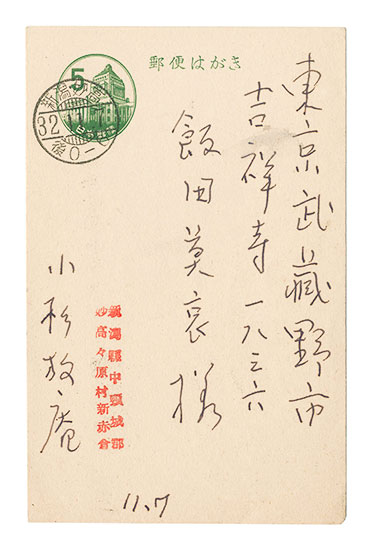 郵便はがき
5
新潟妙高
32.11.
後0-6
東京武蔵野市
吉祥寺一八三六
飯田莫哀様
新潟縣中頸城郡
妙高々原村新赤倉
小杉放庵
11.7